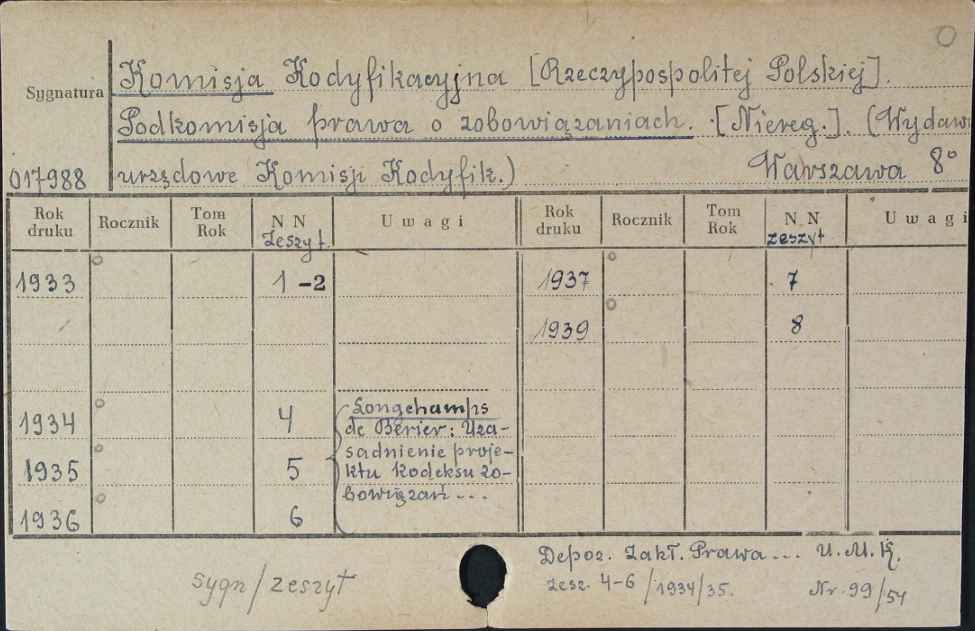 Komisja Kodyfikacyjna [Rzeczypospolitej Polskiej].
Sygnatura
Podkomisja prawa o zobowiązaniach. [Niereg.]. (Wydaw
017988 urzędowe Komisji Kodyfik.) Warszawa 8°
Rok druku Rocznik Tom Rok N N zeszyt. Uwagi Rok druku Rocznik Tom Rok N N zeszyt Uwagi
1933 1-2 1937 7
1939 8
1934 4 Longchamps
de Berier: Uza-
sadnienie proje-
1935 5 ktu kodeksu zo-
bowiązań...
1936 6
Depoz. Zakł. Prawa... U.M.K.
sygn/zeszyt zesz. 4-6/1934/35. Nr. 99/54